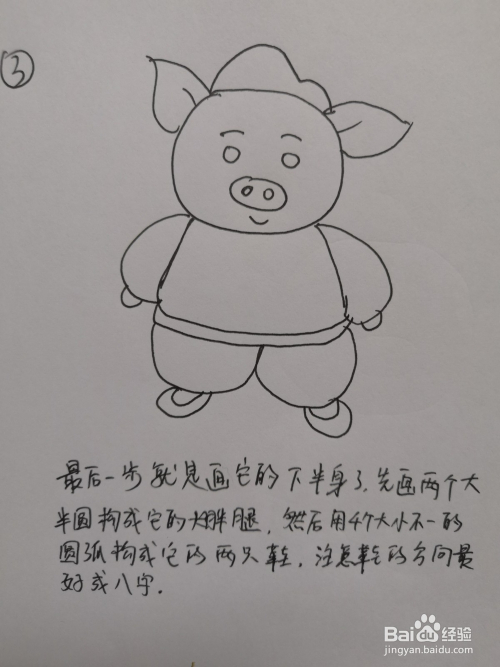 3
最后一步就是画它的下半身了,先画两个大
半圆构成它的大胖腿,然后用4个大小不一的
圆弧构成它的两只鞋,注意鞋的方向最
好成八字.
Baidu经验
jingyan.baidu.com